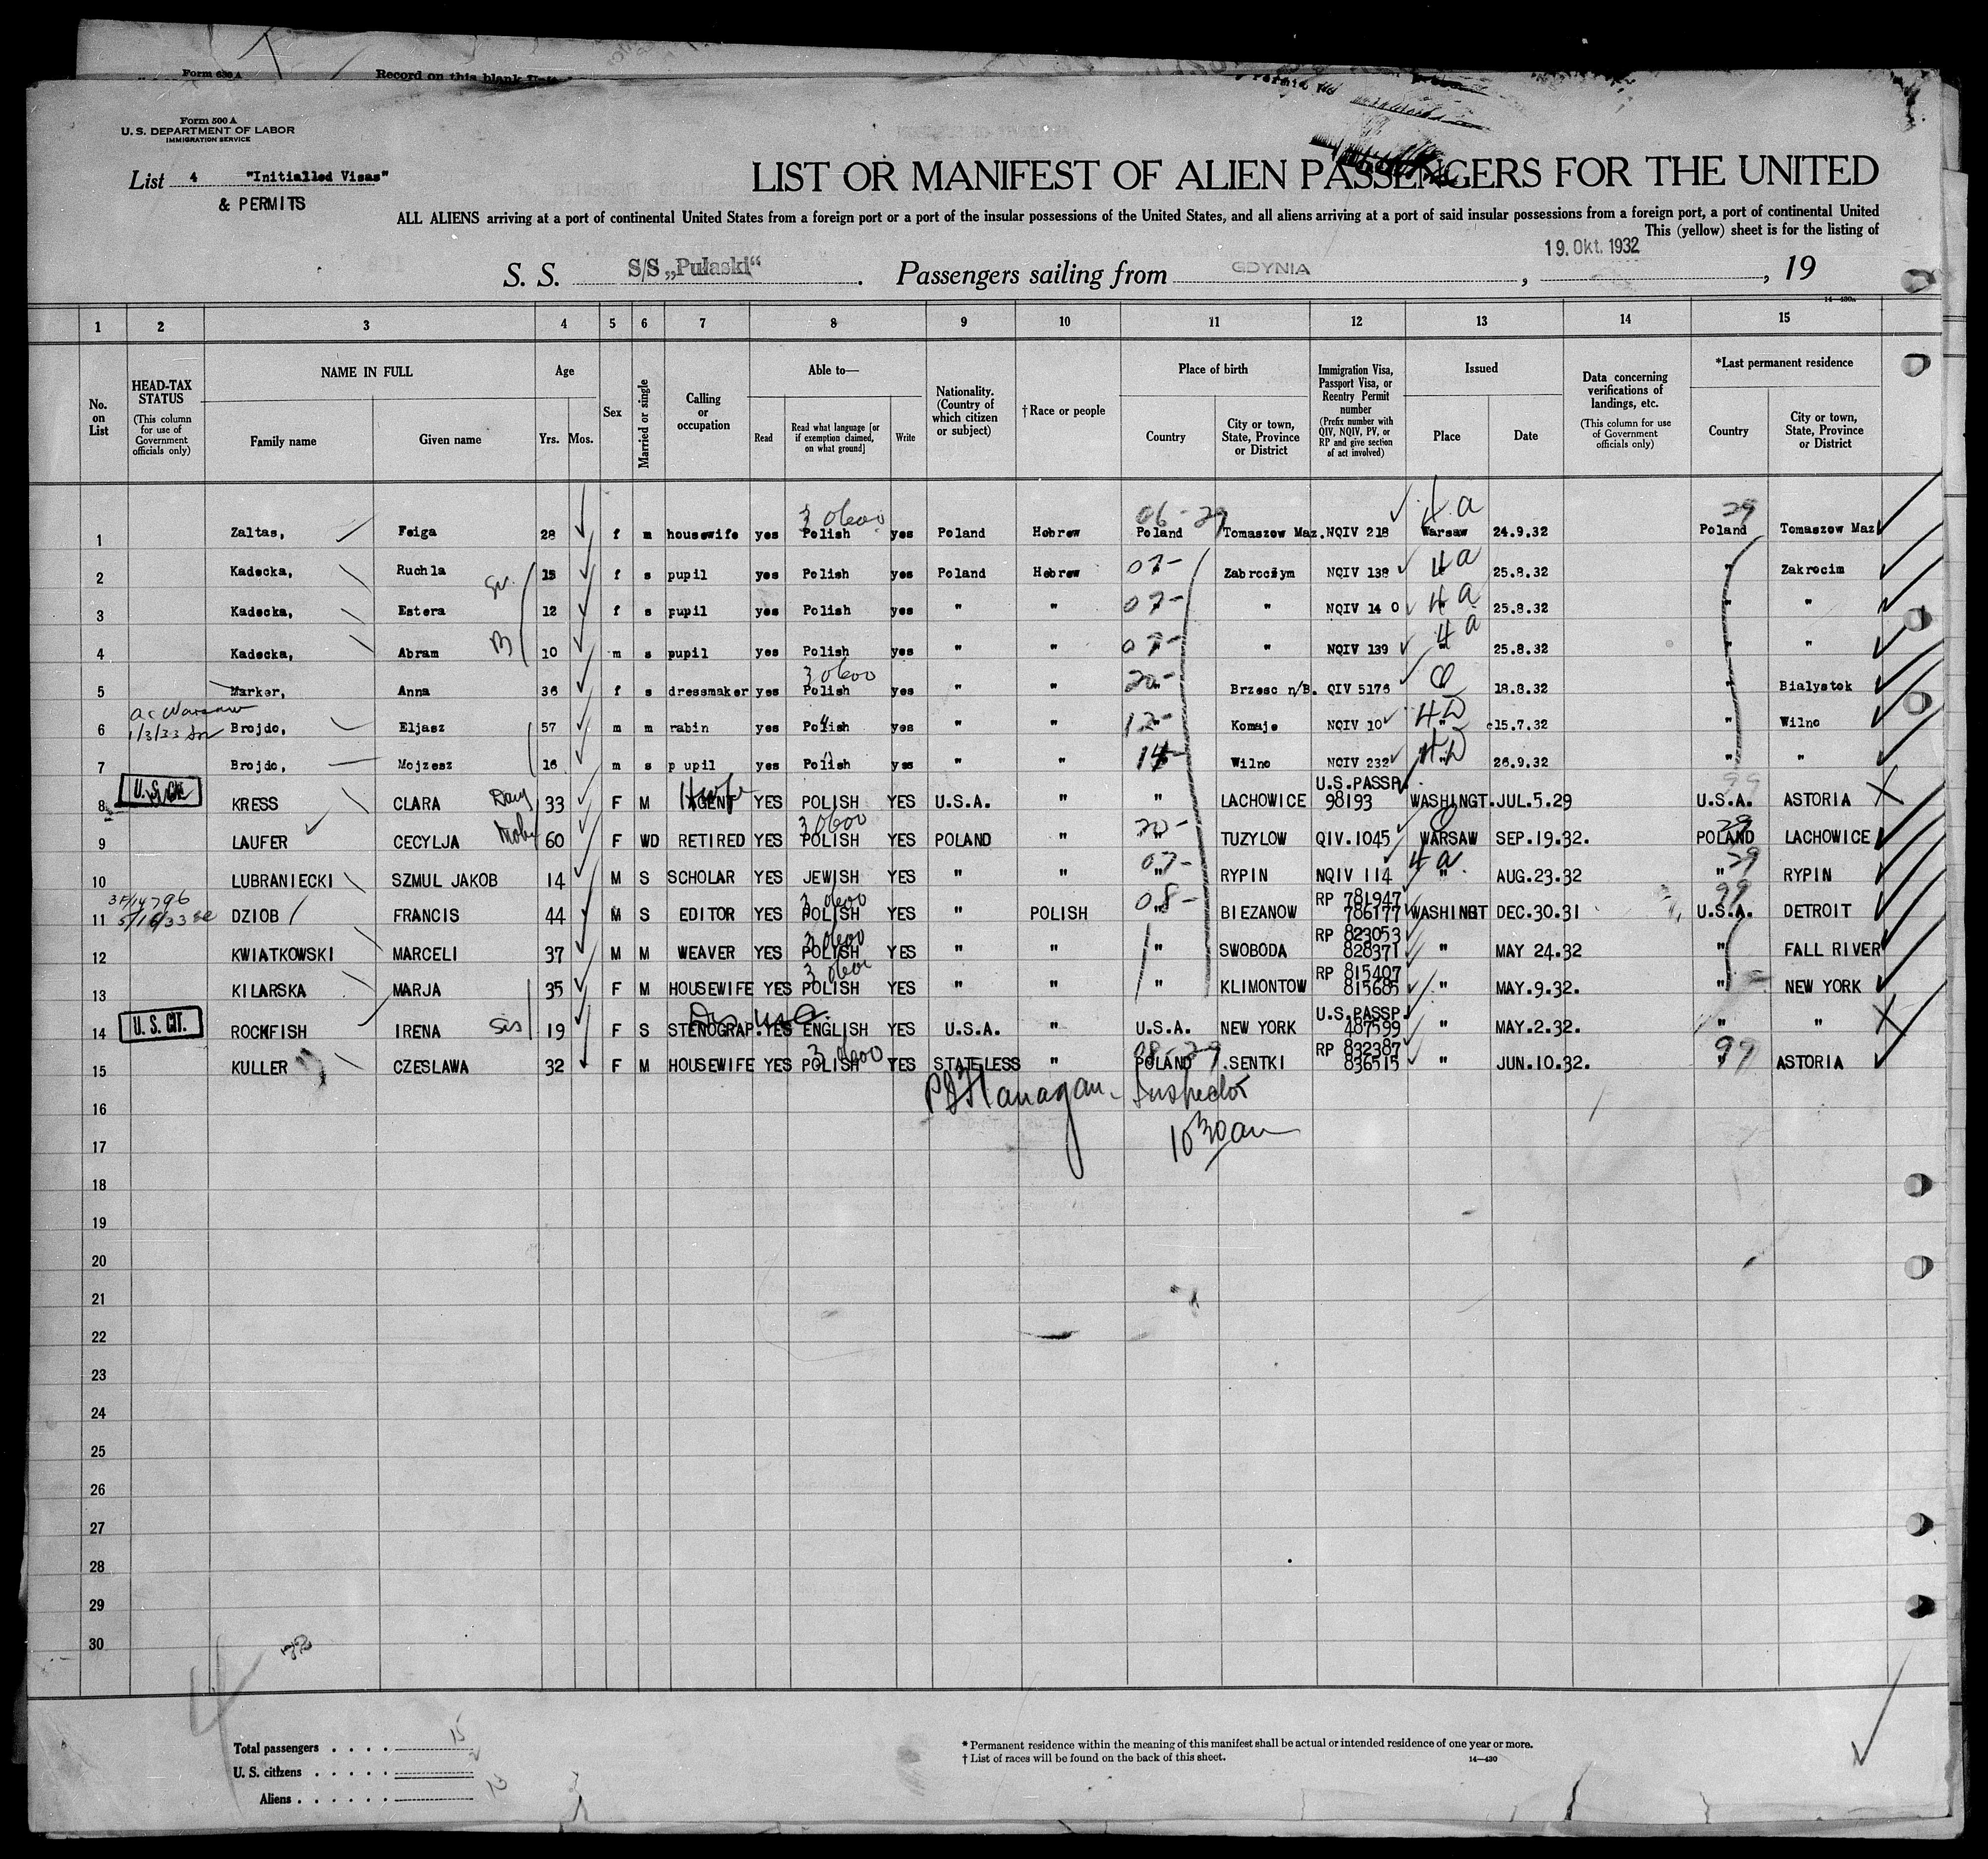 Form 630 A
Record on this blank
Form 500 A
U. S. DEPARTMENT OF LABOR
IMMIGRATION SERVICE
List 4 "Initialled Visas"
& PERMITS
LIST OR MANIFEST OF ALIEN PASSENGERS FOR THE UNITED
ALL ALIENS arriving at a port of continental United States from a foreign port or a port of the insular possessions of the United States, and all aliens arriving at a port of said insular possessions from a foreign port, a port of continental United
This (yellow) sheet is for the listing of
S. S. S/S „Pułaski“. Passengers sailing from GDYNIA, 19. Okt. 1932, 19
14—430a
1 2 3 4 5 6 7 8 9 10 11 12 13 14 15
No. on List
HEAD-TAX STATUS (This column for use of Government officials only)
NAME IN FULL
Family name Given name
Age
Yrs. Mos.
Sex
Married or single
Calling or occupation
Able to—
Read
Read what language [or if exemption claimed, on what ground]
Write
Nationality. (Country of which citizen or subject)
†Race or people
Place of birth
Country
City or town, State, Province or District
Immigration Visa, Passport Visa, or Reentry Permit number (Prefix number with QIV, NQIV, PV, or RP and give section of act involved)
Issued
Place Date
Data concerning verifications of landings, etc. (This column for use of Government officials only)
*Last permanent residence
Country
City or town, State, Province or District
3 0600 06-29 4a 29
1 Zaltas, Feiga 28 f m housewife yes Polish yes Poland Hebrew Poland Tomaszow Maz. NQIV 218 Warsaw 24.9.32 Poland Tomaszow Maz
2 Kadecka, Ruchla 15 f s pupil yes Polish yes Poland Hebrew 07- Zabroczym NQIV 138 4a 25.8.32 " Zakrocim
3 Kadecka, Estera 12 f s pupil yes Polish yes " " 07- " NQIV 14 0 4a 25.8.32 " "
4 Kadecka, Abram 10 m s pupil yes Polish yes " " 07- " NQIV 139 4a 25.8.32 " "
3 0600
5 Marker, Anna 36 f s dressmaker yes Polish yes " " 20- Brzesc n/B. QIV 5176 Q 18.8.32 " Bialystok
ac Warsaw
1/3/33
6 Brojdo, Eljasz 57 m m rabin yes Polish yes " " 12- Komaje NQIV 10 4D 15.7.32 " Wilno
7 Brojdo, Mojzesz 16 m s p upil yes Polish yes " " 14- Wilno NQIV 232 4D 26.9.32 " "
U. S. Cit.
8 KRESS CLARA 33 F M AGENT Hwfe YES POLISH YES U.S.A. " " LACHOWICE U.S.PASSP. 98193 WASHINGT. JUL.5.29 99 U.S.A. ASTORIA
3 0600
9 LAUFER CECYLJA 60 F WD RETIRED YES POLISH YES POLAND " 20- TUZYLOW QIV.1045 Q WARSAW SEP.19.32. 29 POLAND LACHOWICE
10 LUBRANIECKI SZMUL JAKOB 14 M S SCHOLAR YES JEWISH YES " " 07- RYPIN NQIV 114 4a " AUG.23.32 29 " RYPIN
3 0600
11 DZIOB FRANCIS 44 M S EDITOR YES POLISH YES " POLISH 08- BIEZANOW RP 781947 786177 WASHINGT DEC.30.31 99 U.S.A. DETROIT
3 0600
12 KWIATKOWSKI MARCELI 37 M M WEAVER YES POLISH YES " " " SWOBODA RP 823053 828371 " MAY 24.32 " FALL RIVER
3 0600
13 KILARSKA MARJA 35 F M HOUSEWIFE YES POLISH YES " " " KLIMONTOW RP 815407 815685 " MAY.9.32. " NEW YORK
U. S. CIT.
14 ROCKFISH IRENA Sis 19 F S STENOGRAP. YES ENGLISH YES U.S.A. " U.S.A. NEW YORK U.S.PASSP. 487599 " MAY.2.32. " "
3 0600
15 KULLER CZESLAWA 32 F M HOUSEWIFE YES POLISH YES STATELESS " 08-29 POLAND .SENTKI RP 832387 836515 " JUN.10.32. 99 " ASTORIA
Flanagan Inspector
16
10 30 am
17
18
19
20
21
22
23
24
25
26
27
28
29
30
Total passengers . . . . 15
U. S. citizens . . . . . 2
Aliens . . . . . . 13
* Permanent residence within the meaning of this manifest shall be actual or intended residence of one year or more.
† List of races will be found on the back of this sheet.
14—430